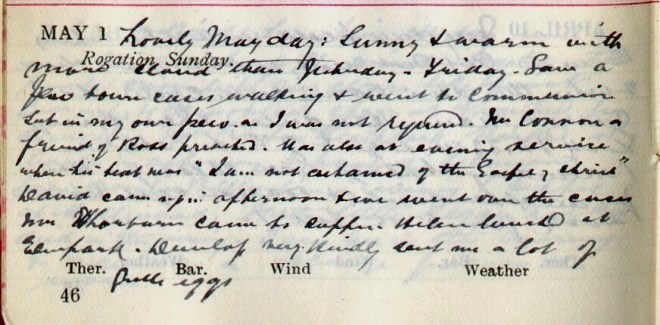 MAY 1 Lovely May day: Sunny & warm with
Rogation Sunday.
more cloud than Yesterday - Friday. Saw a
few town cases walking & went to Communion
Sat in my own pew as I was not required. Mr Connon a
friend of Ross preached. Was also at evening service
when his text was "I am not ashamed of the Gospel of Christ"
David came up in afternoon & we went over the cases
Mrs Thorburn came to supper. Helen lunched at
Elmpark. Dunlop very kindly sent me a lot of
Ther. Bar. Wind Weather
eggs
46